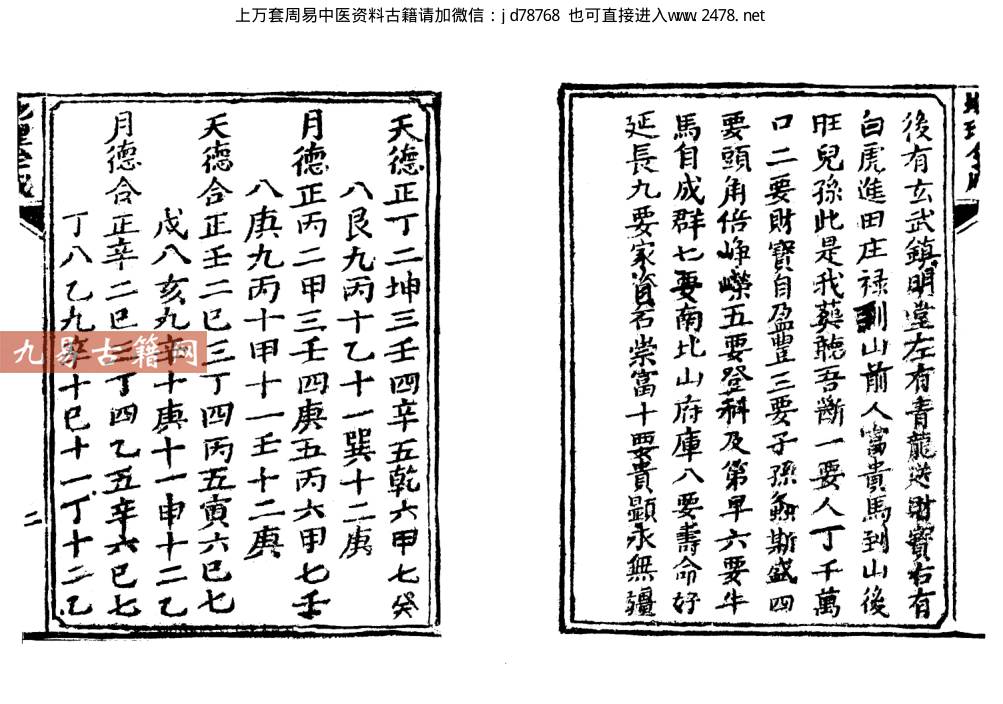 上万套周易中医资料古籍请加微信：jd78768 也可直接进入www.2478.net
後有玄武鎮明堂左有青龍送財寶右有
白虎進田庄禄到山前人富貴馬到山後
旺兒孫此是我葬聽吾斷一要人丁千萬
口二要財寶自盈豐三要子孫螽斯盛四
要頭角倍崢嶸五要登科及第早六要牛
馬自成群七要南北山府庫八要壽命好
延長九要家資石崇富十要貴顯永無疆
天德正丁二坤三壬四辛五乾六甲七癸
八艮九丙十乙十一巽十二庚
月德正丙二甲三壬四庚五丙六甲七壬
八庚九丙十甲十一壬十二庚
天德合正壬二巳三丁四丙五寅六巳七
戊八亥九辛十庚十一申十二乙
月德合正辛二巳三丁四乙五辛六巳七
丁八乙九辛十巳十一丁十二乙
二
九易古籍网